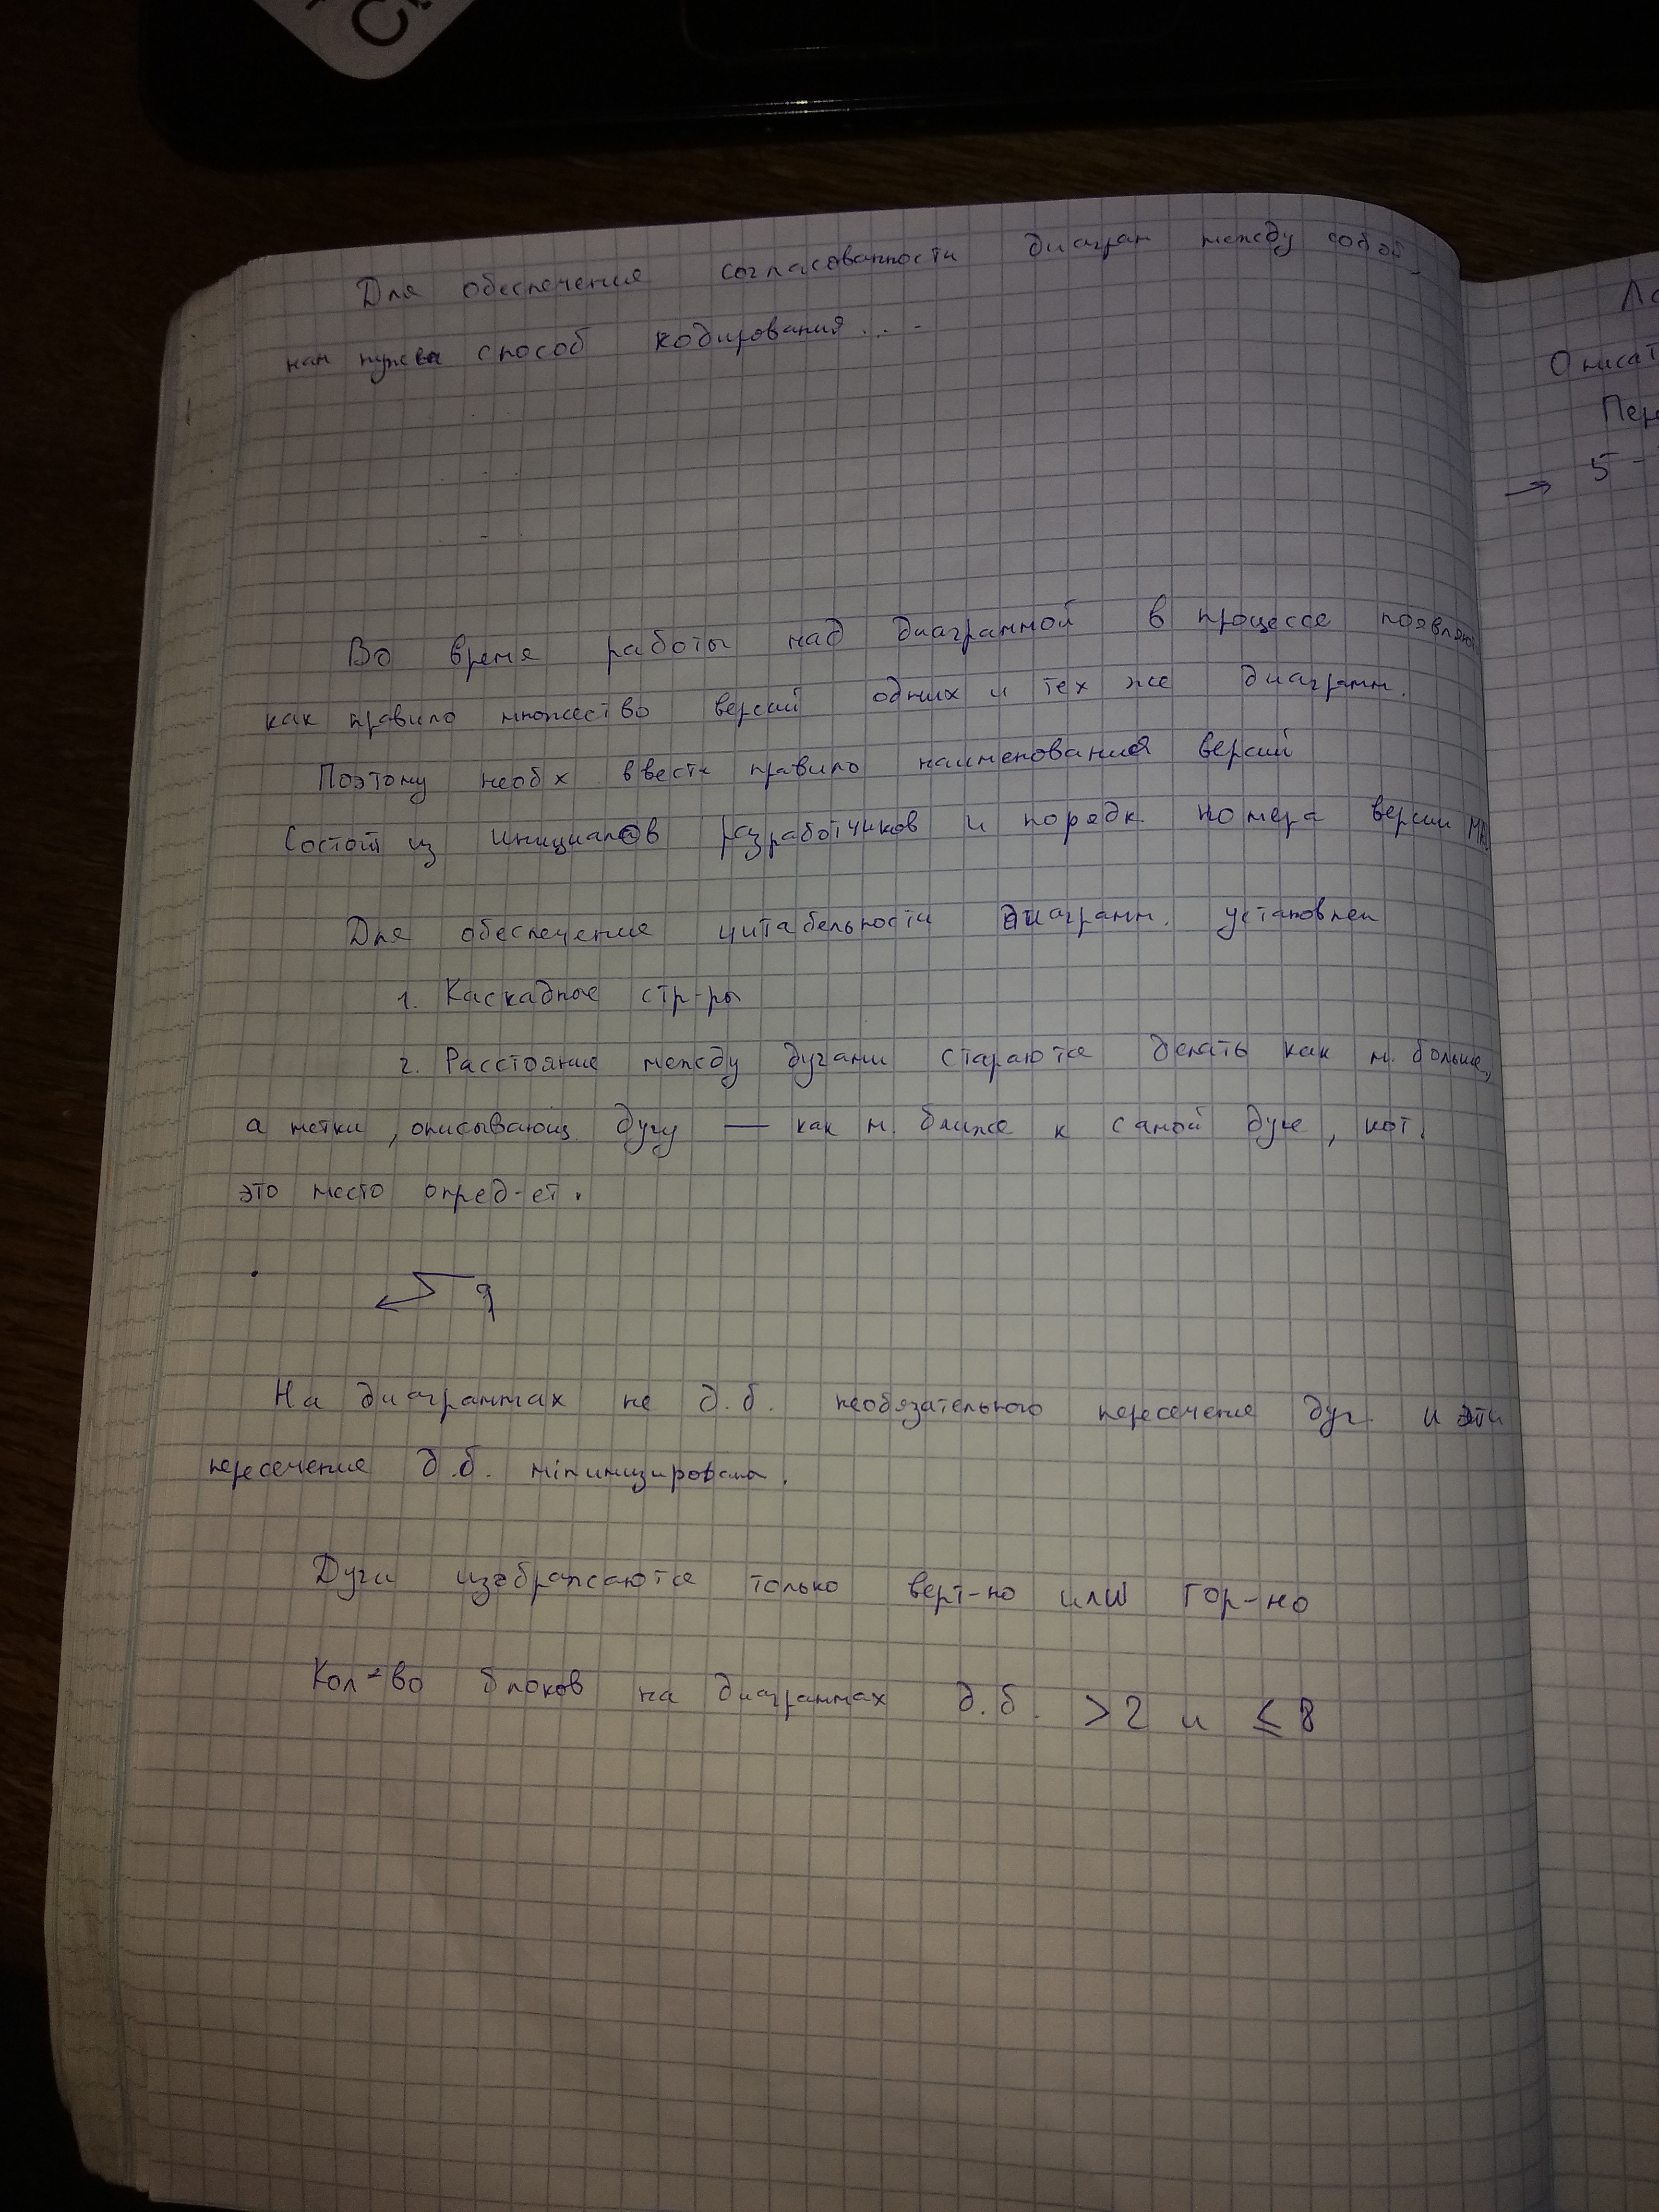 Для обеспечения согласованности диаграм между собой,
нам нужен способ кодирования....
Во время работы над диаграммой в процессе появляют
как правило множество версий одних и тех же диаграмм.
Поэтому необх ввести правило наименования версий
Состоит из инициалов разработчиков и порядк. номера версии МА
Для обеспечение читабельности диаграмм. установлен
1. Каскадные стр-ры
2. Расстояние между дугами стараются делать как м. больше,
а метки, описывающ. дугу — как м. ближе к самой дуге, кот.
это место опред-ет.
На диаграммах не д.б. необязательного пересечения дуг и эти
пересечения д.б. минимизирована.
Дуги изображаются только верт-но или гор-но
Кол-во блоков на диаграммах д.б. >2 и ≤ 8
Описат
Пер
→ 5 -